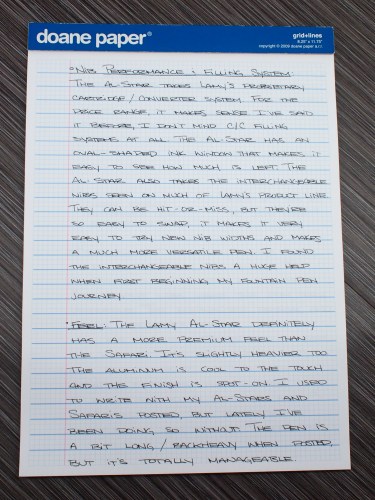 doane paper®
grid+lines
8.25" x 11.75"
• Nib Performance & Filling System:
The Al-Star takes Lamy's proprietary
cartridge/converter system. For the
price range, it makes sense. I've said
it before, I don't mind C/C filling
systems at all. The Al-Star has an
oval-shaped ink window that makes it
easy to see how much is left. The
Al-Star also takes the interchangeable
nibs seen on much of Lamy's product line.
They can be hit-or-miss, but they're
so easy to swap, it makes it very
easy to try new nib widths and makes
a much more versatile pen. I found
the interchangeable nibs a huge help
when first beginning my fountain pen
journey.
• Feel: The Lamy Al-Star definitely
has a more premium feel than
the Safari. It's slightly heavier too.
The aluminum is cool to the touch
and the finish is spot-on. I used
to write with my Al-Stars and
Safaris posted, but lately I've
been doing so without. The pen is
a bit long/backheavy when posted,
but it's totally manageable.